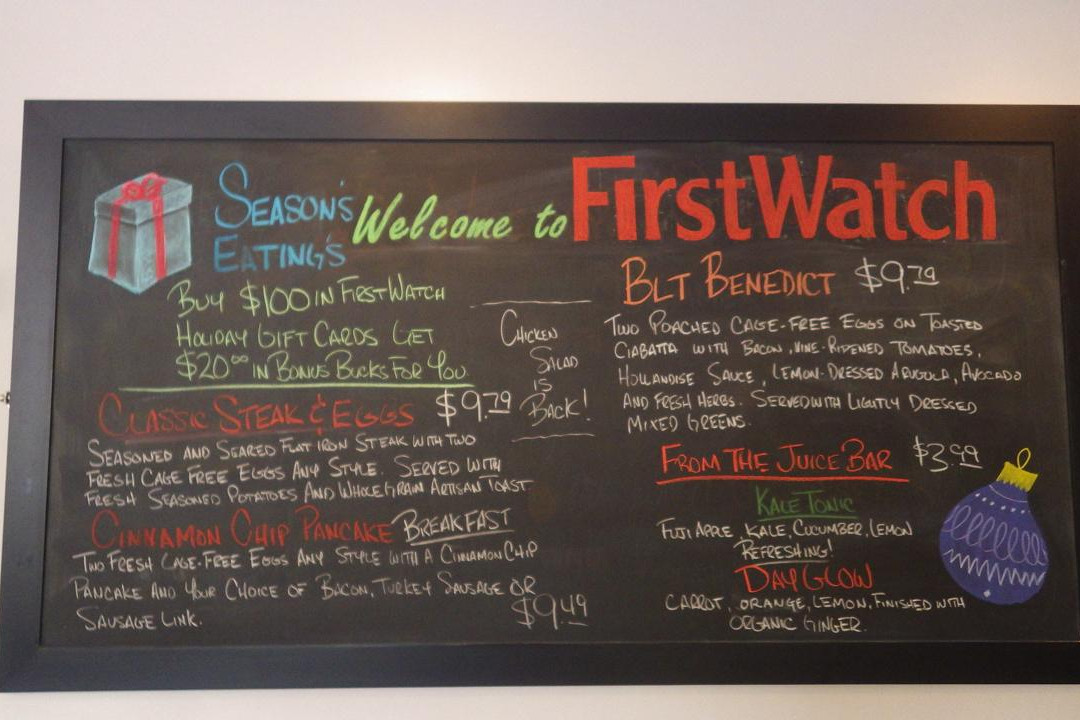 SEASON'S
EATING'S
Welcome to FirstWatch
BUY $100 IN FIRSTWATCH
HOLIDAY GIFT CARDS GET
$20.00 IN BONUS BUCKS FOR YOU
CLASSIC STEAK & EGGS $9.79
SEASONED AND SEARED FLAT IRON STEAK WITH TWO
FRESH CAGE FREE EGGS ANY STYLE. SERVED WITH
FRESH SEASONED POTATOES AND WHOLEGRAIN ARTISAN TOAST
CINNAMON CHIP PANCAKE BREAKFAST
TWO FRESH CAGE-FREE EGGS ANY STYLE WITH A CINNAMON CHIP
PANCAKE AND YOUR CHOICE OF BACON, TURKEY SAUSAGE OR
SAUSAGE LINK.
$9.49
CHICKEN
SALAD
IS
BACK!
BLT BENEDICT $9.79
TWO POACHED CAGE-FREE EGGS ON TOASTED
CIABATTA WITH BACON, VINE-RIPENED TOMATOES,
HOLLANDISE SAUCE, LEMON-DRESSED ARUGULA, AVOCADO
AND FRESH HERBS. SERVED WITH LIGHTLY DRESSED
MIXED GREENS.
FROM THE JUICE BAR $3.99
KALE TONIC
FUJI APPLE, KALE, CUCUMBER, LEMON
REFRESHING!
DAY GLOW
CARROT, ORANGE, LEMON, FINISHED WITH
ORGANIC GINGER.